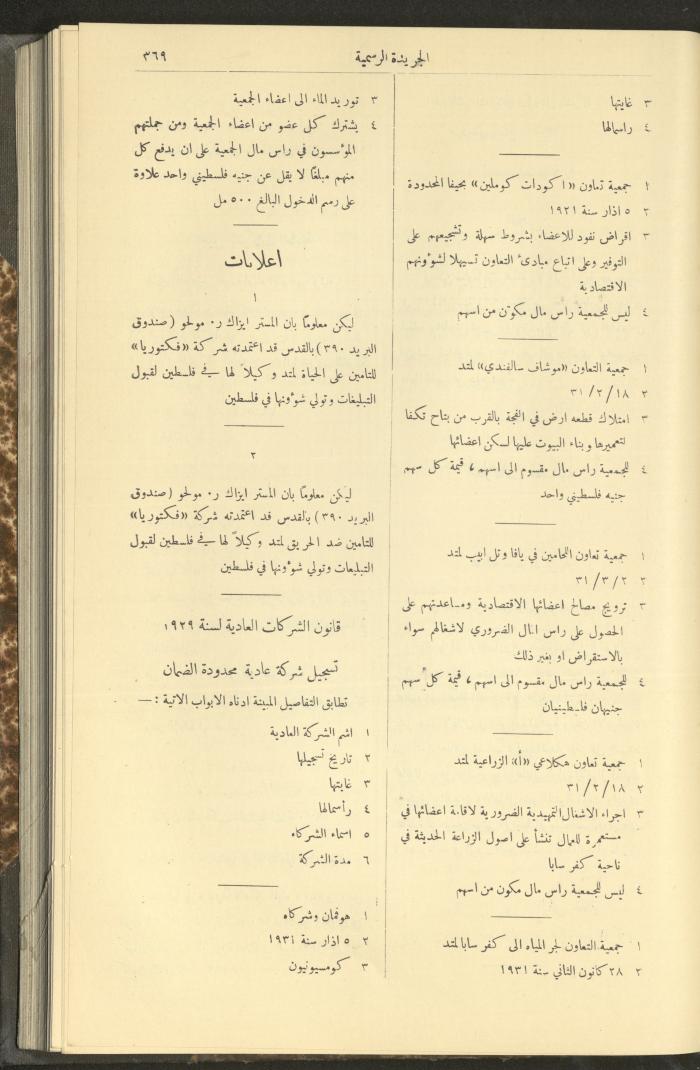 الجريدة الرسمية
٣٦٩
٣ غايتها
٤ راسمالها
١ جمعية تعاون «اكودات كوملين» بحيفا المحدودة
٢ ٥ اذار سنة ١٩٢١
٣ اقراض نفود للاعضاء بشروط سهلة وتشجيعهم على
التوفير وعلى اتباع مبادئ التعاون تسهيلا لشوؤنهم
الاقتصادية
٤ ليس للجمعية راس مال مكون من اسهم
١ جمعية التعاون «موشاف سالفندي» لمتد
٢ ٣١/٢/١٨
٣ امتلاك قطعه ارض في الفجة بالقرب من بتاح تكفا
لتعميرها وبناء البيوت عليها لسكن اعضائها
٤ للجمعية راس مال مقسوم الى اسهم ، قيمة كل سهم
جنيه فلسطيني واحد
١ جمعية تعاون اللحامين في يافا وتل ابيب لمتد
٢ ٣١/٣/٢
٣ ترويج مصالح اعضائها الاقتصادية ومساعدتهم على
الحصول على راس المال الضروري لاشغالهم سواء
بالاستقراض او بغير ذلك
٤ للجمعية راس مال مقسوم الى اسهم ، قيمة كل سهم
جنيهان فلسطينيان
١ جمعية تعاون هكلاعي «أ» الزراعية لمتد
٢ ٣١/٢/١٨
٣ اجراء الاشغال التمهيدية الضرورية لاقامة اعضائها في
مستعمرة للعمال تنشأ على اصول الزراعة الحديثة في
ناحية كفر سابا
٤ ليس للجمعية راس مال مكون من اسهم
١ جمعية التعاون لجر المياه الى كفر سابا لمتد
٢ ٢٨ كانون الثاني سنة ١٩٣١
٣ توريد الماء الى اعضاء الجمعية
٤ يشترك كل عضو من اعضاء الجمعية ومن جملتهم
المؤسسون في راس مال الجمعية على ان يدفع كل
منهم مبلغًا لا يقل عن جنيه فلسطيني واحد علاوة
على رسم الدخول البالغ ٥٠٠ مل
اعلانات
١
ليكن معلومًا بان المستر ايزاك ر. مولحو (صندوق
البريد ٣٩٠) بالقدس قد اعتمدته شركة «فكتوريا»
للتامين على الحياة لمتد وكيلاً لها في فلسطين لقبول
التبليغات وتولي شوؤنها في فلسطين
٢
ليكن معلومًا بان المستر ايزاك ر. مولحو (صندوق
البريد ٣٩٠) بالقدس قد اعتمدته شركة «فكتوريا»
للتامين ضد الحريق لمتد وكيلاً لها في فلسطين لقبول
التبليغات وتولي شوؤنها في فلسطين
قانون الشركات العادية لسنة ١٩٢٩
تسجيل شركة عادية محدودة الضمان
تطابق التفاصيل المبينة ادناه الابواب الاتية : —
١ اسم الشركة العادية
٢ تاريخ تسجيلها
٣ غايتها
٤ رأسمالها
٥ اسماء الشركاء
٦ مدة الشركة
١ هوفمان وشركاه
٢ ٥ اذار سنة ١٩٣١
٣ كومسيونيون